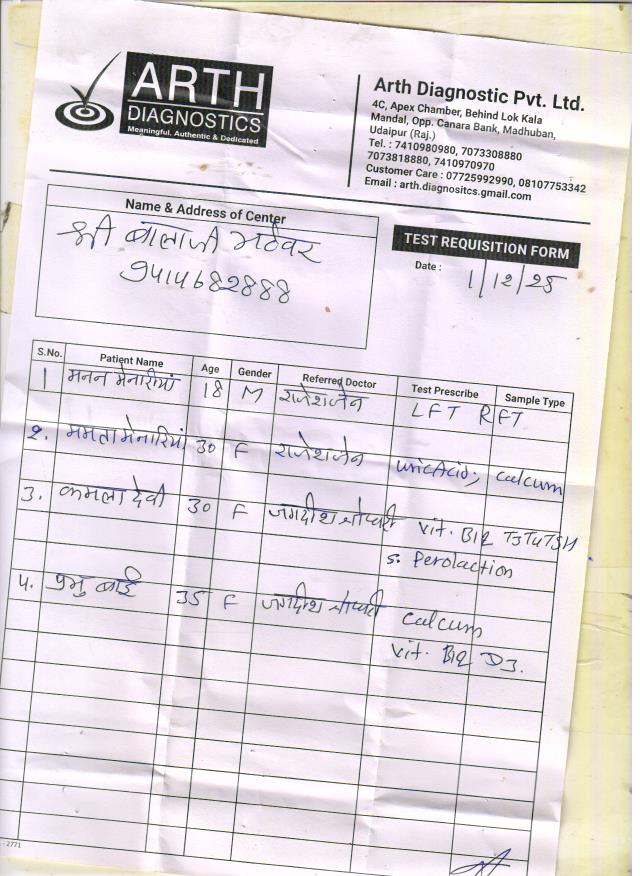 ARTH
DIAGNOSTICS
Meaningful, Authentic & Dedicated
Arth Diagnostic Pvt. Ltd.
4C, Apex Chamber, Behind Lok Kala
Mandal, Opp. Canara Bank, Madhuban,
Udaipur (Raj.)
Tel. : 7410980980, 7073308880
7073818880, 7410970970
Customer Care : 07725992990, 08107753342
Email : arth.diagnositcs.gmail.com
Name & Address of Center
श्री बालाजी भटेवर
9414682888
TEST REQUISITION FORM
Date : 1/12/25
S.No. Patient Name Age Gender Referred Doctor Test Prescribe Sample Type
1 मनन मेनारीयां 18 M राजेश जैन LFT RFT
2. ममता मेनारियां 30 F राजेश जैन uric Acid; Calcum
3. कमला देवी 30 F जगदीश चौधरी Vit. B12 T3T4TSH
S. Perolaction
4. प्रभु बाई 35 F जगदीश चौधरी Calcum
Vit. B12 D3.
- 2771